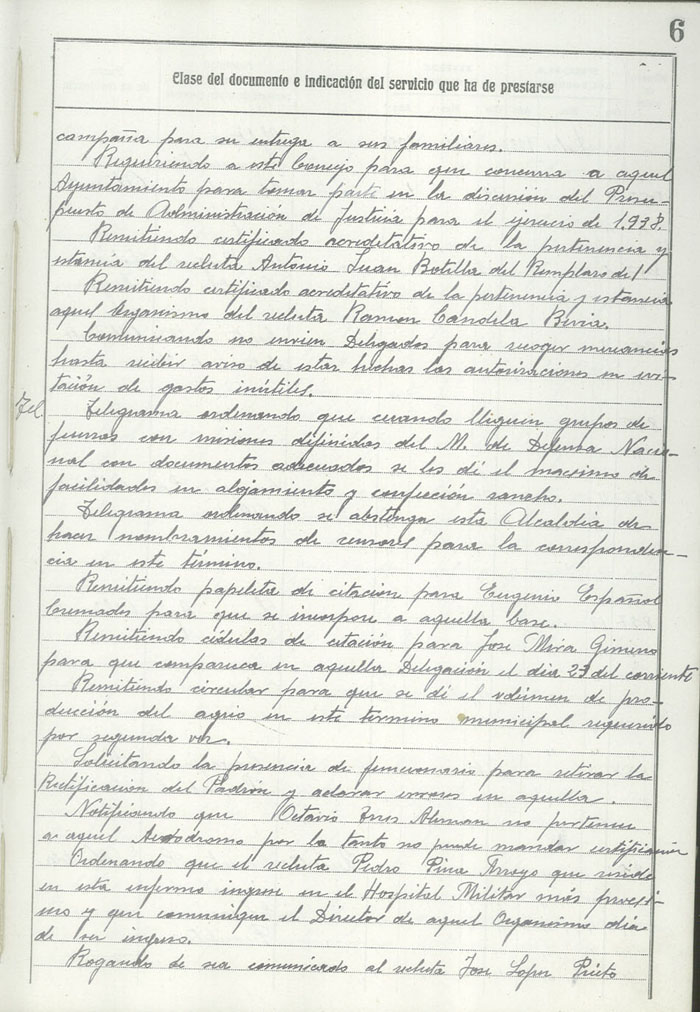 6
Clase del documento e indicación del servicio que ha de prestarse
campaña para su entrega a sus familiares.
Requiriendo a este Consejo para que concurra a aquel
Ayuntamiento para tomar parte en la discusión del Presu-
puesto de Administración de Justicia para el ejercicio de 1.938.
Remitiendo certificado acreditativo de la pertenencia y
estancia del recluta Antonio Juan Botella del Remplazo del
Remitiendo certificado acreditativo de la pertenencia y estancia
aquel Organismo del recluta Ramon Candela Beria.
Comunicando no envien Delegados para recoger mercancias
hasta recibir aviso de estar hechas las autorizaciones en evi-
tación de gastos inutiles.
Tel
Telegrama ordenando que cuando lleguen grupos de
fuerzas con misiones difinidas del M. de Defensa Nacio-
nal con documentos adecuados se les dé el maximo de
facilidades en alojamiento y confección rancho.
Telegrama ordenando se abstenga esta Alcaldia de
hacer nombramientos de censores para la corresponden-
cia en este término.
Remitiendo papeleta de citación para Eugenio Español
Cremades para que se incorpore a aquella base.
Remitiendo cédulas de citación para Jose Mira Gimeno
para que comparezca en aquella Delegación el dia 23 del corriente
Remitiendo circular para que se dé el volúmen de pro-
ducción del agrio en este termino municipal requerido
por segunda vez.
Solicitando la presencia de funcionario para retirar la
Rectificación del Padrón y aclarar errores en aquella.
Notificando que Octavio Ines Aleman no pertenece
a aquel Aerodromo por lo tanto no puede mandar certificación
Ordenando que el recluta Pedro Pina Arroyo que reside
en esta enfermo ingrese en el Hospital Militar más proxi-
mo y que comunique el Director de aquel Organismo dia
de su ingreso.
Rogando de sea comunicado al recluta Jose Lopez Prieto